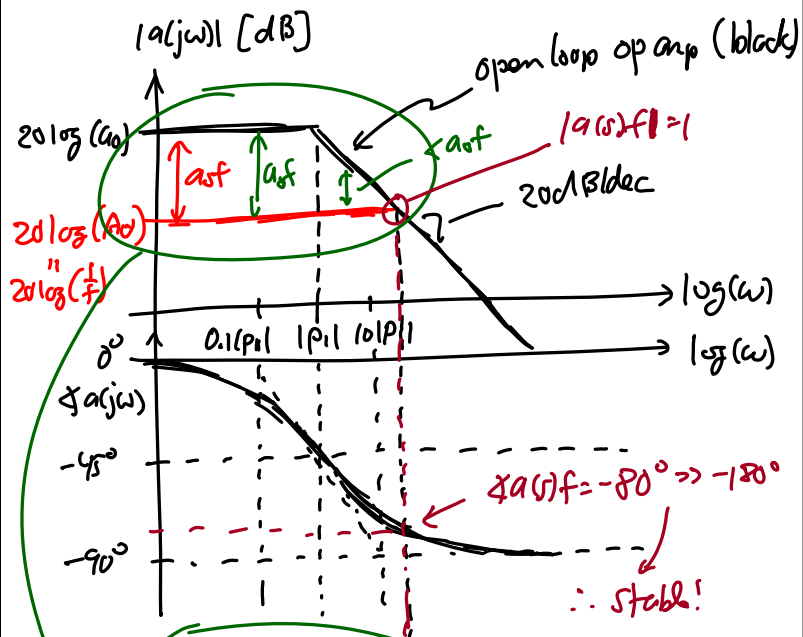 |a(jω)| [dB]
open loop op amp (black)
20log(a₀)
|a(s)f|=1
a₀f
a₀f
< a₀f
20dB/dec
20log(A₀)
"
20log(1/f)
log(ω)
0.1|p₁| |p₁| 10|p₁|
0°
log(ω)
∢a(jω)
-45°
∢a(s)f=-80° >> -180°
-90°
∴ stable!